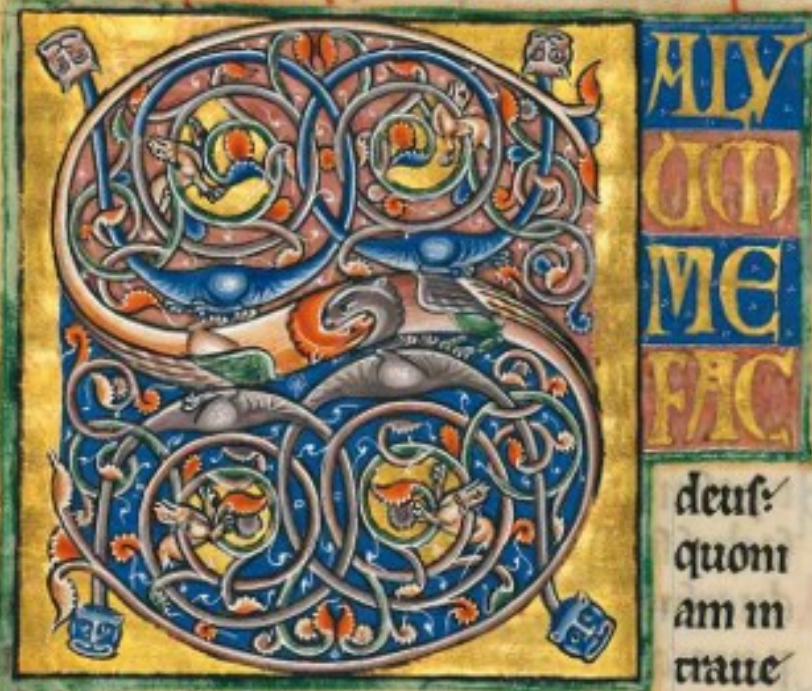 SALV
UM
ME
FAC
deuſ:
quoni
am in
traue